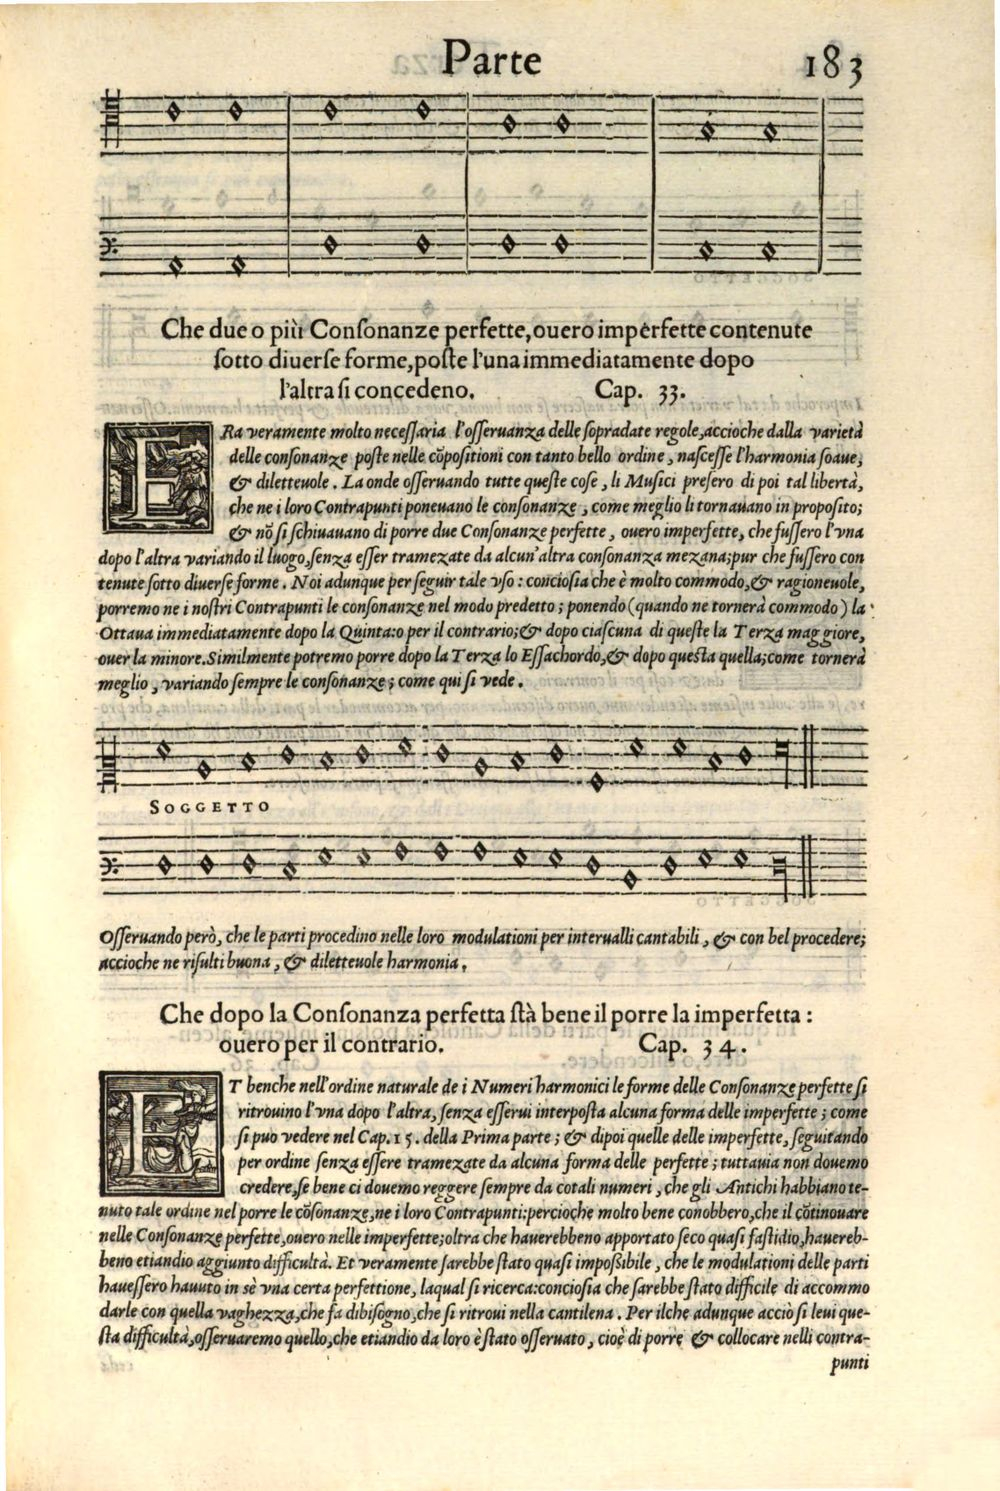 Parte 183
Che due o più Conſonanze perfette,ouero imperfette contenute
ſotto diuerſe forme,poſte l'una immediatamente dopo
l'altra ſi concedeno. Cap. 33.
ERa veramente molto neceſſaria l'oſſeruanza delle ſopradate regole,accioche dalla varietà
delle conſonanze poſte nelle cõpoſitioni con tanto bello ordine, naſceſſe l'harmonia ſoaue,
& dilettevole. La onde oſſeruando tutte queſte coſe, li Muſici preſero di poi tal libertà,
che ne i loro Contrapunti poneuano le conſonanze, come meglio li tornauano in propoſito;
& nõ ſi ſchiuauano di porre due Conſonanze perfette, ouero imperfette, che fuſſero l'vna
dopo l'altra variando il luogo,ſenza eſſer tramezate da alcun'altra conſonanza mezana;pur che fuſſero con
tenute ſotto diuerſe forme. Noi adunque per ſeguir tale vſo: conciosia che è molto commodo,& ragioneuole,
porremo ne i noſtri Contrapunti le conſonanze nel modo predetto; ponendo (quando ne tornerà commodo) la
Ottaua immediatamente dopo la Quinta:o per il contrario;& dopo ciaſcuna di queſte la Terza maggiore,
ouer la minore.Similmente potremo porre dopo la Terza lo Eſſachordo,& dopo queſta quella;come tornerà
meglio, variando ſempre le conſonanze; come qui ſi vede.
SOGGETTO
Oſſeruando però, che le parti procedino nelle loro modulationi per interualli cantabili, & con bel procedere;
accioche ne riſulti buona, & dilettevole harmonia.
Che dopo la Conſonanza perfetta ſtà bene il porre la imperfetta:
ouero per il contrario. Cap. 34.
ET benche nell'ordine naturale de i Numeri harmonici le forme delle Conſonanze perfette ſi
ritrouino l'vna dopo l'altra, ſenza eſſerui interpoſta alcuna forma delle imperfette; come
ſi puo vedere nel Cap.15. della Prima parte; & dipoi quelle delle imperfette, ſeguitando
per ordine ſenza eſſere tramezate da alcuna forma delle perfette; tuttauia non douemo
credere,ſe bene ci douemo reggere ſempre da cotali numeri, che gli Antichi habbiano te-
nuto tale ordine nel porre le cõſonanze,ne i loro Contrapunti:percioche molto bene conobbero,che il cõtinouare
nelle Conſonanze perfette,ouero nelle imperfette;oltra che hauerebbeno apportato ſeco quaſi faſtidio,hauereb-
beno etiandio aggiunto difficultà. Et veramente ſarebbe ſtato quaſi impoßibile, che le modulationi delle parti
haueſſero hauuto in sè vna certa perfettione, laqual ſi ricerca:conciosia che ſarebbe ſtato difficile di accommo
darle con quella vaghezza,che fa dibiſogno,che ſi ritroui nella cantilena. Per ilche adunque acciò ſi leui que-
ſta difficultà,oſſeruaremo quello,che etiandio da loro è ſtato oſſeruato, cioè di porre & collocare nelli contra-
punti